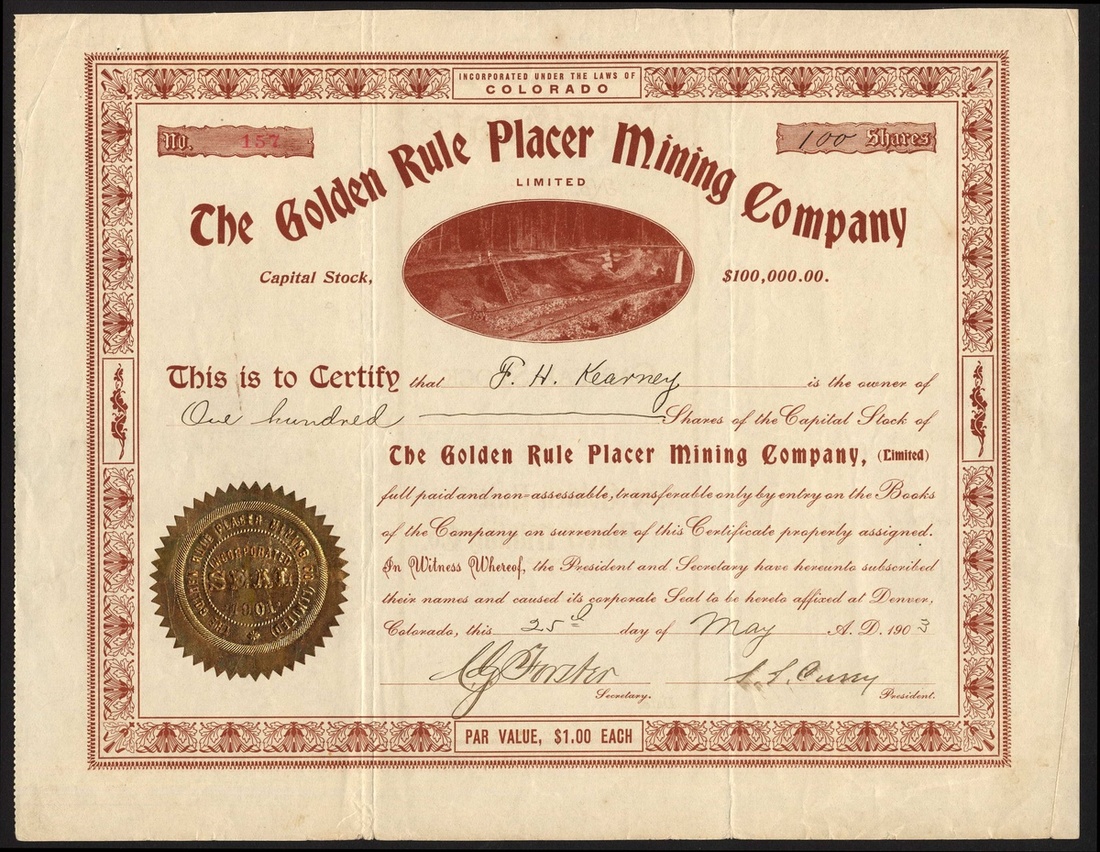 INCORPORATED UNDER THE LAWS OF
COLORADO
No. 157
100 Shares
The Golden Rule Placer Mining Company
LIMITED
Capital Stock, $100,000.00.
This is to Certify that F. H. Kearney is the owner of
One hundred Shares of the Capital Stock of
The Golden Rule Placer Mining Company, (Limited)
full paid and non-assessable, transferable only by entry on the Books
of the Company on surrender of this Certificate properly assigned.
In Witness Whereof, the President and Secretary have hereunto subscribed
their names and caused its corporate Seal to be hereto affixed at Denver,
Colorado, this 25d day of May A. D. 1903
C G Forster
Secretary.
President.
THE GOLDEN RULE PLACER MINING CO. (LIMITED)
INCORPORATED
SEAL
1901
PAR VALUE, $1.00 EACH